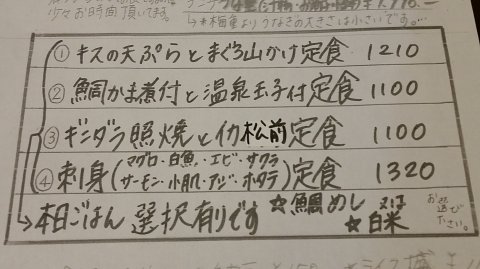 お時間頂いてます。
うなぎの大きさは小さいです。
① キスの天ぷらとまぐろ山かけ定食 1210
② 鯛かま煮付と温泉玉子付定食 1100
③ ギンダラ照焼とイカ松前定食 1100
④ 刺身(マグロ・白魚・エビ・サクラサーモン・小肌・アジ・ホタテ)定食 1320
→本日ごはん 選択有りです ☆鯛めし 又は ☆白米 お選び下さい。